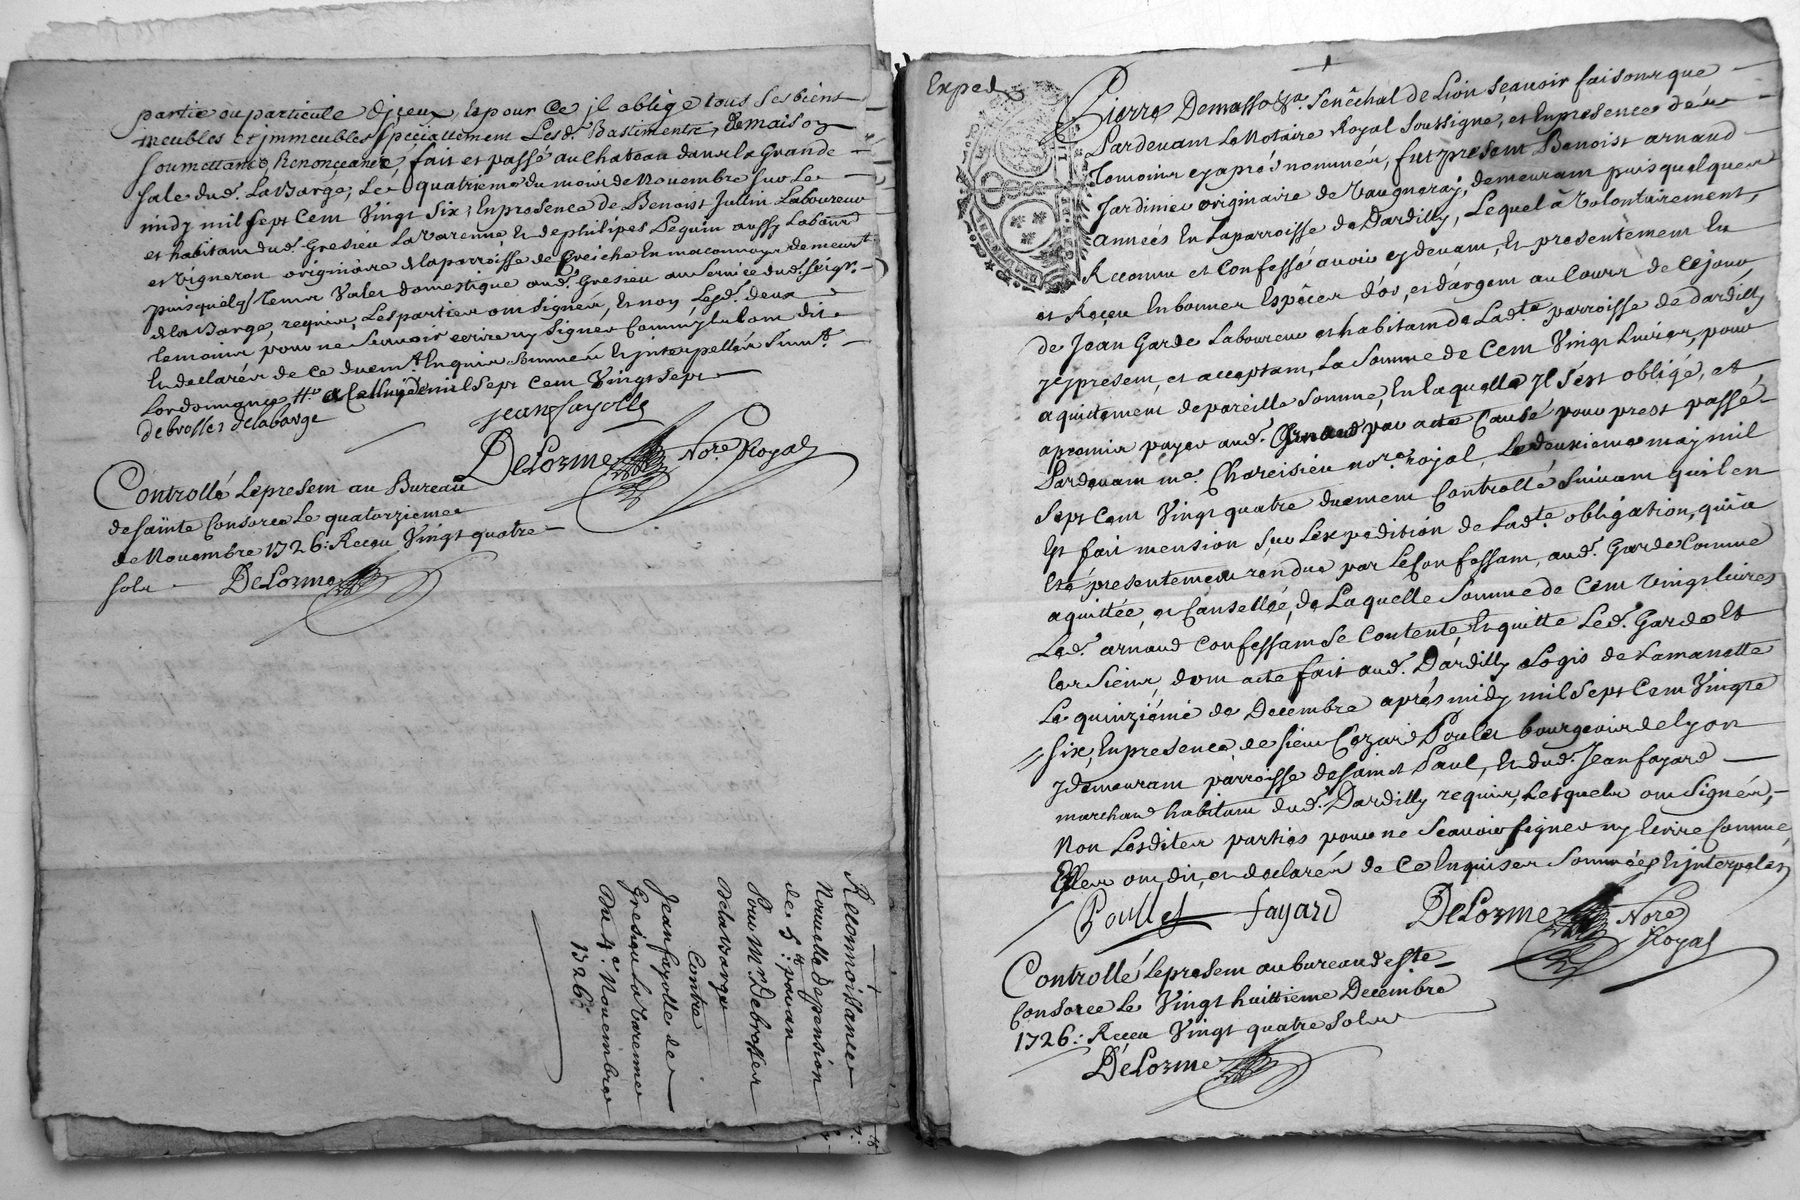 partie ou particule diceux, et pour ce jl oblige tous ses biens
meubles et jmmeubles specialement Lesd. Bastiments, de maison
soumettant, Renonceant, fait et passé au Chateau dans la Grande
sale dud. La Barge, Le quatrieme du mois de Novembre sur Le
midy mil sept Cent Vingt six; En presence de Benoist Jullin Laboureur
et habitant dud. Gresieu La Varenne et de philipes Peguin aussy Labour
et Vigneron originaire de la parroisse de en maconnoys demeurt.
puis quelq temps Valet domestique aud. Gresieu au service dud. seigr.
de la Barge, requis, Les parties ont signées, Et non Lesd. deux
temoins pour ne scavoir ecrire ny signer Comme jls lont dit
Et declarés de ce duemt. Enquis sommés Et jnterpellés suivt.
Lordonnance mil sept cent Vingt sept
debrosses delabarge
jean fayolle
DeLorme Nore. Royal
Controllé Le present au Bureau
de sainte Consorce Le quatorzieme
de Novembre 1726: Receu Vingt quatre
sols DeLorme
Reconnoissance
Nouvelle de pension
de 5tt. par an
Pour Mr. Debrosses
Dela Barge
Contre
Jean fayolle de
Gresieu La Varenne
Du 4e. Novembre
1726:
Exped
Pierre Demasso sr. Senêchal de Lion sçavoir faisons que
Pardevant Le Notaire Royal Soussigné, et En presence des
temoins cy aprés nommés, fut present Benoist arnaud
Jardinier originaire de Vaugneray, demeurant puis quelques
années En La parroisse de Dardilly, Lequel â Volontairement,
Reconnu et Confessé avoir cy devant, Et presentement Eu
et Receu En bonnes Espêces d'or, et d'argent au Cours de Ce jour
de Jean Garde Laboureur et habitant de Ladte. parroisse de dardilly
jcy present, et acceptant, La Somme de Cent Vingt Livres, pour
aquitement de pareille Somme, En laquelle jl s'est obligé, et
apromis payer aud. arnaud par acte Causé pour prest passé
Pardevant me. Chareisieu nore. royal, Le deuxieme may mil
Sept Cent Vingt quatre duement Controllé Suivant quil en
Est fait mension Sur Lexpedition de Ladte. obligation, qui a
Eté presentement rendue par Le Confessant, aud. Garde Comme
aquittée, et Cansellée, de Laquelle Somme de Cent Vingt Livres
Led. arnaud Confessant se Contente, En quitte Led. Garde Et
les Siens, dont acte fait aud. Dardilly a Logis de
Le quinziéme de Decembre aprés midy mil Sept Cent Vingt
Six, En presence de sieur Cezard Poulet bourgeois de lyon
y demeurant parroisse de saint Paul, Et dud. Jean fayard
marchand habitant dud. Dardilly requis, Lesquels ont Signés,
Non Lesdites parties pour ne Scavoir signer ny Ecrire Comme
Elles ont dit, et declarés de Ce Enquises Sommées Et jnterpelés
Poullet fayard DeLorme Nore.
Royal
Controllé Le present au bureau de ste
Consorce Le Vingt huittieme Decembre
1726: Receu Vingt quatre sols
DeLorme